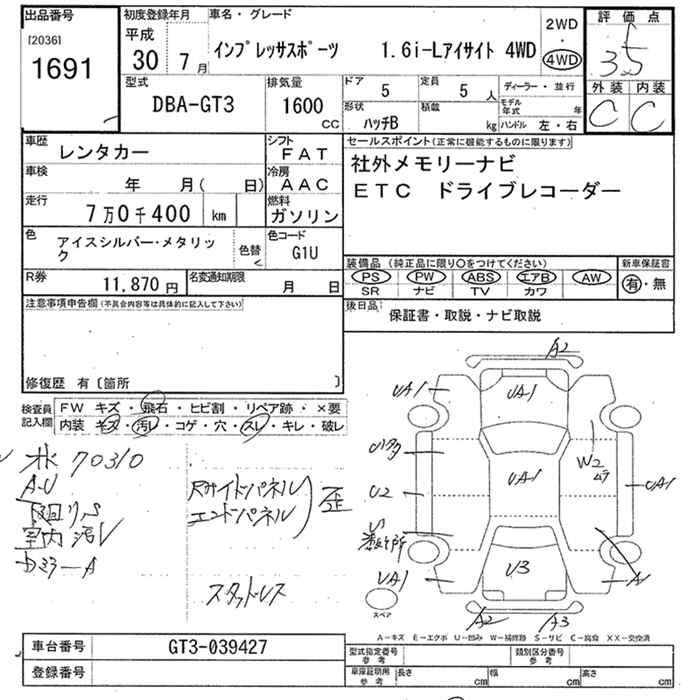 出品番号
[2036]
1691
初度登録年月
平成
30年 7月
車名・グレード
インプレッサスポーツ 1.6i-Lアイサイト 4WD
2WD
4WD
評価点
3.5
外装 内装
C C
型式
DBA-GT3
排気量
1600
CC
ドア 5
定員 5人
形状
ハッチB
積載
kg
ディーラー・並行
モデル年式 年
ハンドル 左・右
車歴 レンタカー
車検 年 月( 日)
走行 7万0千400 km
色 アイスシルバー・メタリック
色替
シフト
FAT
冷房
AAC
燃料
ガソリン
色コード
G1U
R券 11,870円
名変通知期限 月 日
セールスポイント(正常に機能するものに限ります)
社外メモリーナビ
ETC ドライブレコーダー
装備品 (純正品に限り○をつけてください)
PS PW ABS エアB AW
SR ナビ TV カワ
新車保証書
有・無
後日品 保証書・取説・ナビ取説
注意事項申告欄(不具合内容等は具体的に記入して下さい)
修復歴 有〔箇所 〕
検査員記入欄
FW キズ・飛石・ヒビ割・リペア跡・×要
内装 キズ・汚レ・コゲ・穴・スレ・キレ・破レ
70310
A・U
下廻りS
室内汚レ
Rサイドパネル
エンドパネル
歪
スタッドレス
A2
UA1
UA1
UA1
UA1
UA1
U2
U3
W2
ムラ
A
A2
A3
スペア
A-キズ E-エクボ U-凹み W-補修跡 S-サビ C-腐食 XX-交換済
車台番号 GT3-039427
登録番号
型式指定番号
参考
類別区分番号
参考
車庫証明用
参考
長さ cm
幅 cm
高さ cm